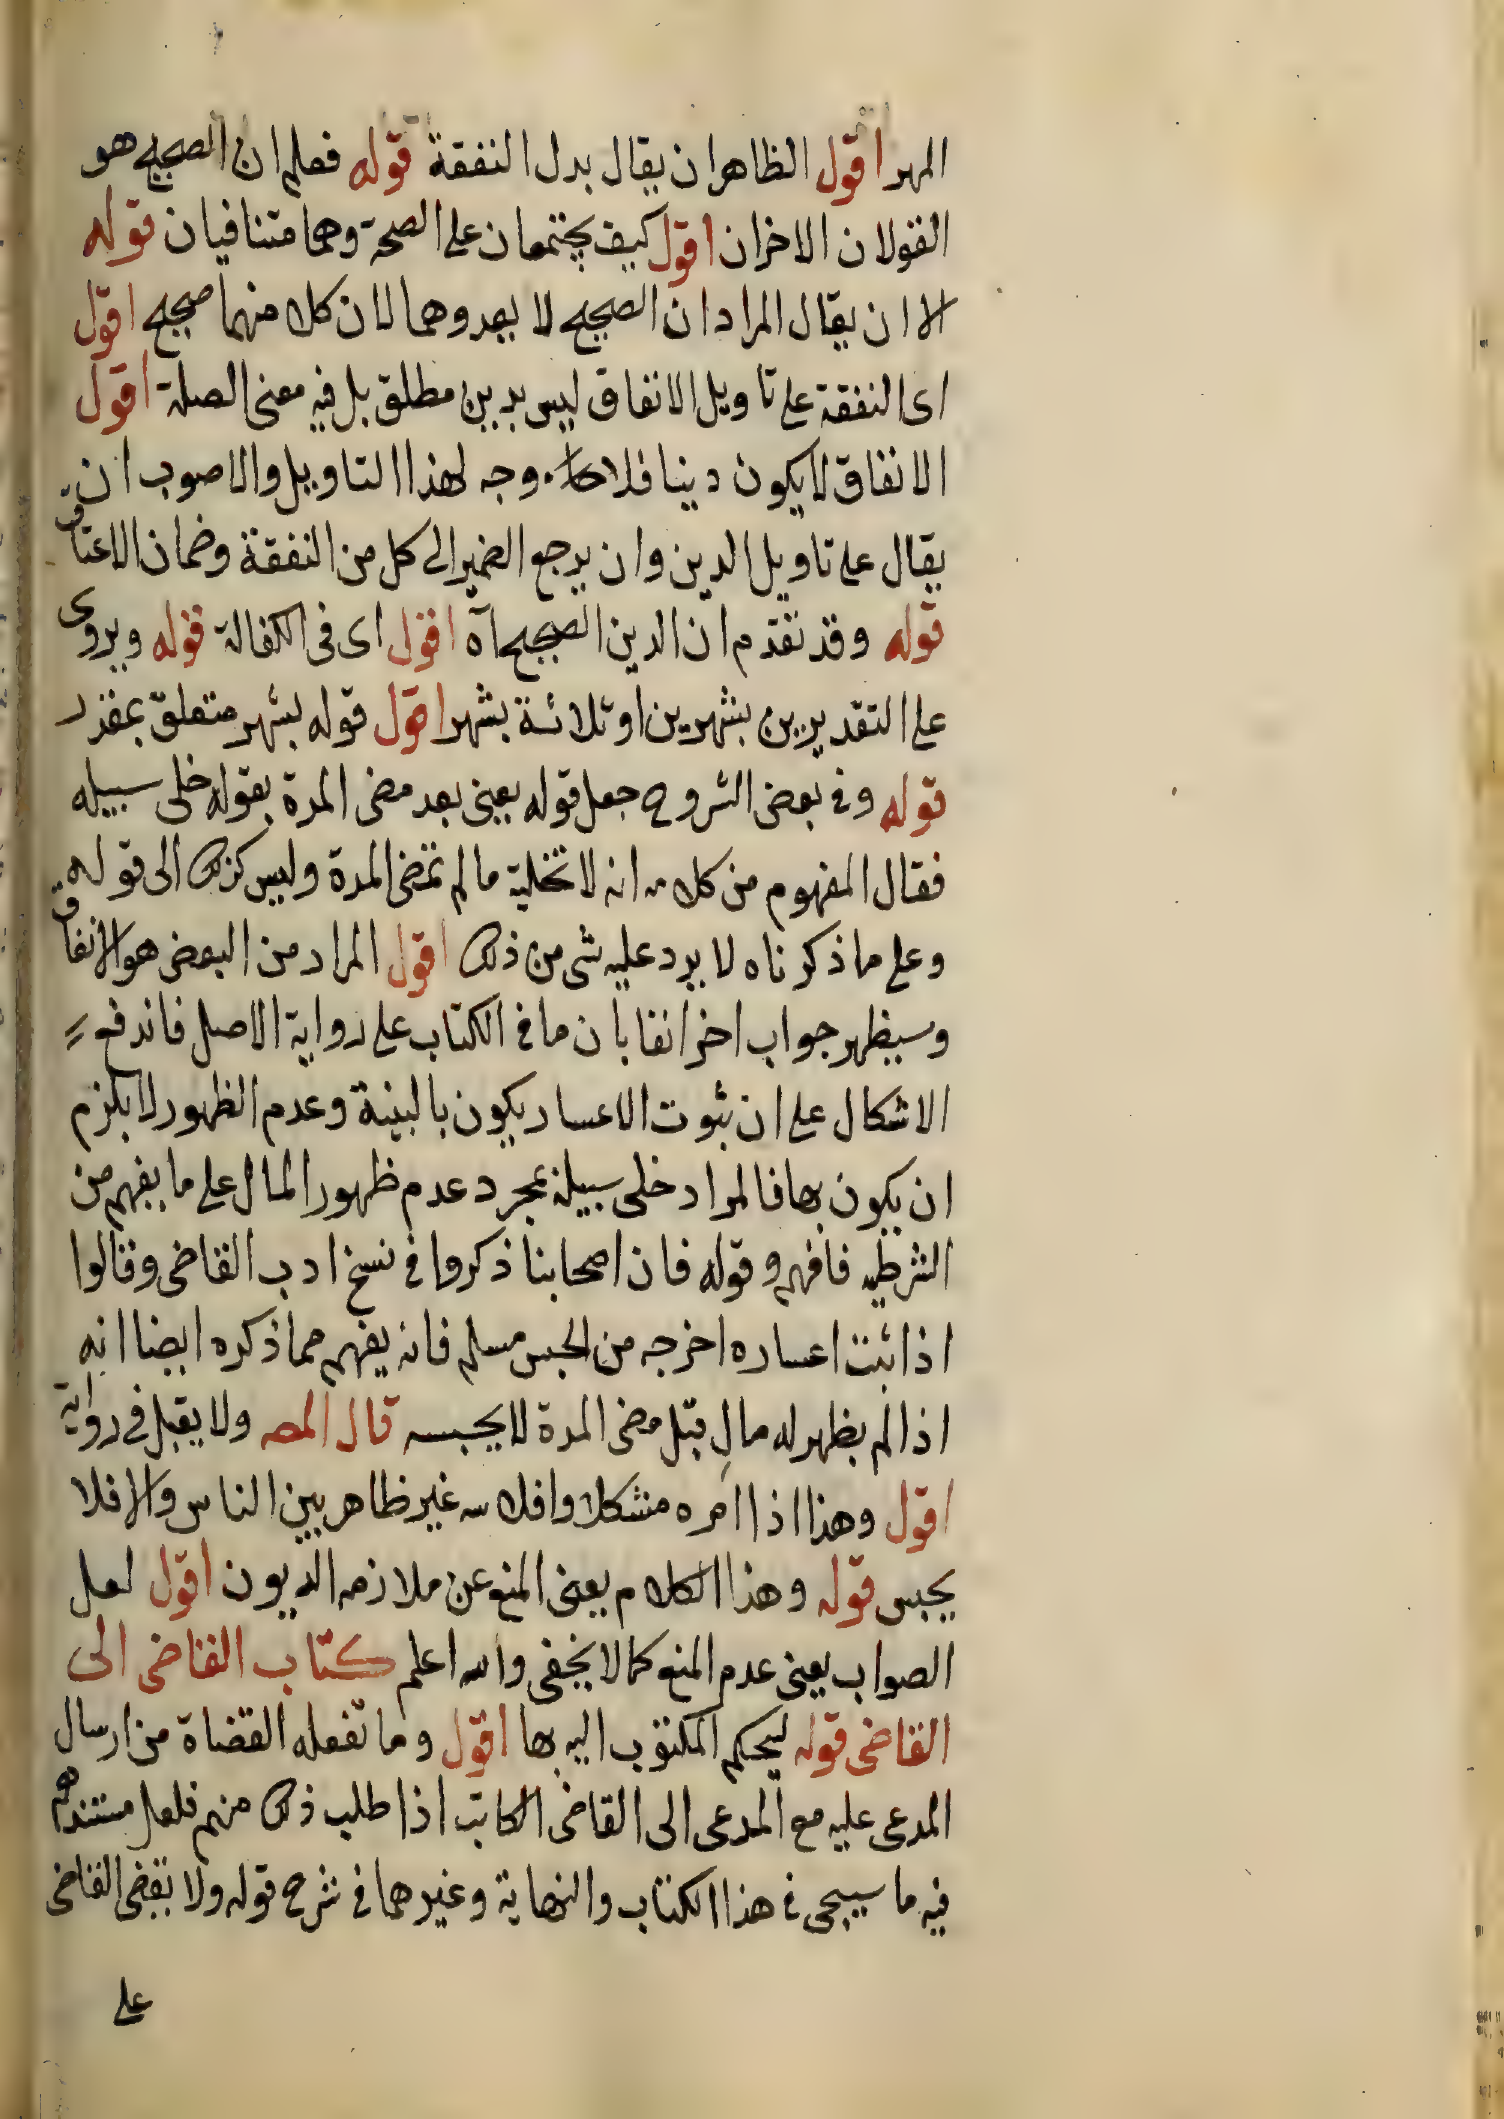 المهر اقول الظاهر ان يقال بدل النفقة قوله فعلم ان الصحيح هو
القولان الاخران اقول كيف يجتمعان على الصحة وهما متنافيان قوله
الا ان يقال المراد ان الصحيح لا يعدوهما لان كلا منهما صحيح اقول
اى النفقة على تاويل الانفاق ليس بدين مطلق بل فيه معنى الصلة اقول
الانفاق لا يكون دينا فلا وجه لهذا التاويل والاصوب ان
يقال على تاويل الدين وان يرجع الضمير الى كل من النفقة وضمان الاعتاق
قوله وقد تقدم ان الدين الصحيح آه اقول اى فى الكفالة قوله ويروى
على التقديرين بشهرين او ثلاثة بشهر اقول قوله بشهر متعلق بمقدر
قوله وفى بعض الشروح جعل قوله يعنى بعد مضى المدة بقوله خلى سبيله
فقال المفهوم من كلامه انه لا تخلية ما لم تمض المدة وليس كذلك الى قوله
وعلى ما ذكرناه لا يرد عليه شى من ذلك اقول المراد من البعض هو الانفاق
وسيظهر جواب اخر انفا بان ما فى الكتاب على رواية الاصل فاندفع
الاشكال على ان ثبوت الاعسار يكون بالبينة وعدم الظهور لا يلزم
ان يكون بها فالمراد خلى سبيله بمجرد عدم ظهور المال على ما يفهم من
الشرطيه فافهم وقوله فان اصحابنا ذكروا فى نسخ ادب القاضى وقالوا
اذا ثبت اعساره اخرجه من الحبس مسلم فانه يفهم مما ذكره ايضا انه
اذا لم يظهر له مال قبل مضى المدة لا يحبسه قال المصـ ولا يقبل فى رواية
اقول وهذا اذا امره مشكلا وافلاسه غير ظاهر بين الناس والا فلا
يحبس قوله وهذا الكلام يعنى المنع عن ملازمه المديون اقول لعل
الصواب يعنى عدم المنع كما لا يخفى والله اعلم كتاب القاضى الى
القاضى قوله ليحكم المكتوب اليه بها اقول وما تفعله القضاة من ارسال
المدعى عليه مع المدعى الى القاضى الكاتب اذا طلب ذلك منهم فلعل مستندهم
فيه ما سيجى فى هذا الكتاب والنهاية وغيرهما فى شرح قوله ولا يقضى القاضى
على